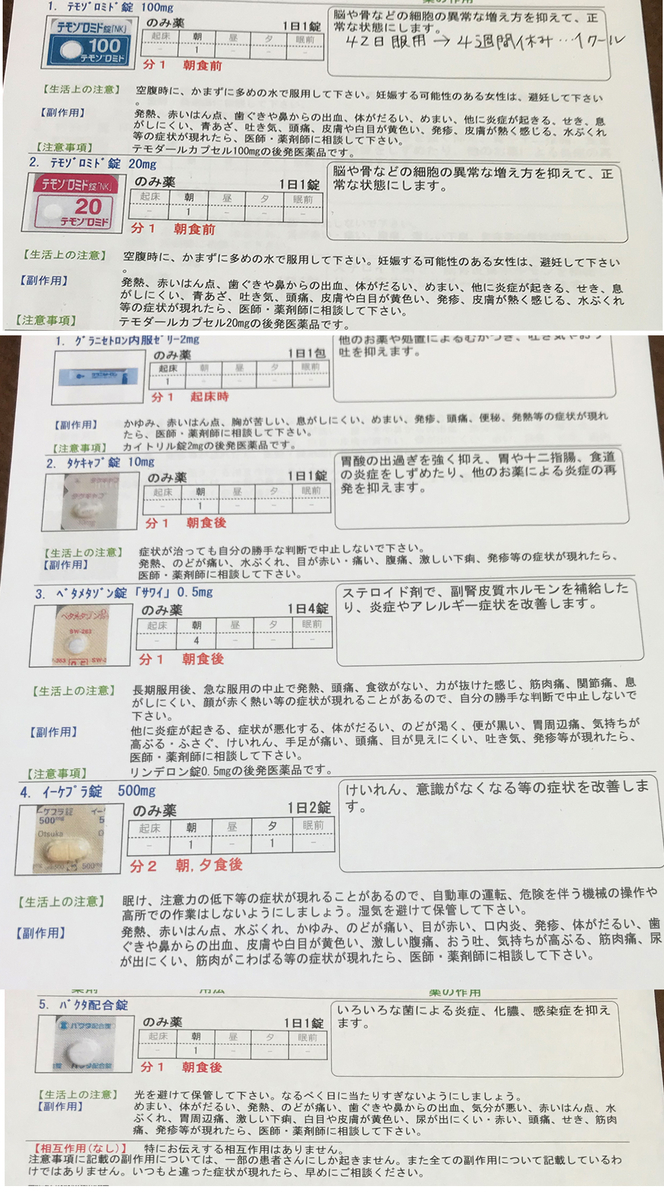 薬の作用
1. テモゾロミド錠 100mg
のみ薬 1日1錠
起床 朝 昼 夕 眠前
- 1 - - -
分1 朝食前
脳や骨などの細胞の異常な増え方を抑えて、正
常な状態にします。
42日服用→4週間休み…1クール
テモゾロミド錠「NK」
100
テモゾロミド
【生活上の注意】 空腹時に、かまずに多めの水で服用して下さい。妊娠する可能性のある女性は、避妊して下さい
。
【副作用】 発熱、赤いはん点、歯ぐきや鼻からの出血、体がだるい、めまい、他に炎症が起きる、せき、息
がしにくい、青あざ、吐き気、頭痛、皮膚や白目が黄色い、発疹、皮膚が熱く感じる、水ぶくれ
等の症状が現れたら、医師・薬剤師に相談して下さい。
【注意事項】 テモダールカプセル100mgの後発医薬品です。
2. テモゾロミド錠 20mg
のみ薬 1日1錠
起床 朝 昼 夕 眠前
- 1 - - -
分1 朝食前
脳や骨などの細胞の異常な増え方を抑えて、正
常な状態にします。
テモゾロミド錠「NK」
20
テモゾロミド
【生活上の注意】 空腹時に、かまずに多めの水で服用して下さい。妊娠する可能性のある女性は、避妊して下さい
。
【副作用】 発熱、赤いはん点、歯ぐきや鼻からの出血、体がだるい、めまい、他に炎症が起きる、せき、息
がしにくい、青あざ、吐き気、頭痛、皮膚や白目が黄色い、発疹、皮膚が熱く感じる、水ぶくれ
等の症状が現れたら、医師・薬剤師に相談して下さい。
【注意事項】 テモダールカプセル20mgの後発医薬品です。
1. グラニセトロン内服ゼリー2mg
のみ薬 1日1包
起床 朝 昼 夕 眠前
1 - - - -
分1 起床時
他のお薬や処置によるむかつき、吐き気やおう
吐を抑えます。
【副作用】 かゆみ、赤いはん点、胸が苦しい、息がしにくい、めまい、発疹、頭痛、便秘、発熱等の症状が現れ
たら、医師・薬剤師に相談して下さい。
【注意事項】 カイトリル錠2mgの後発医薬品です。
2. タケキャブ錠 10mg
のみ薬 1日1錠
起床 朝 昼 夕 眠前
- 1 - - -
分1 朝食後
胃酸の出過ぎを強く抑え、胃や十二指腸、食道
の炎症をしずめたり、他のお薬による炎症の再
発を抑えます。
タケキャブ
【生活上の注意】 症状が治っても自分の勝手な判断で中止しないで下さい。
【副作用】 発熱、のどが痛い、水ぶくれ、目が赤い・痛い、腹痛、激しい下痢、発疹等の症状が現れたら、
医師・薬剤師に相談して下さい。
3. ベタメタゾン錠「サワイ」0.5mg
のみ薬 1日4錠
起床 朝 昼 夕 眠前
- 4 - - -
分1 朝食後
ステロイド剤で、副腎皮質ホルモンを補給した
り、炎症やアレルギー症状を改善します。
ベタメタゾン
SW-263
【生活上の注意】 長期服用後、急な服用の中止で発熱、頭痛、食欲がない、力が抜けた感じ、筋肉痛、関節痛、息
がしにくい、顔が赤く熱い等の症状が現れることがあるので、自分の勝手な判断で中止しないで
下さい。
【副作用】 他に炎症が起きる、症状が悪化する、体がだるい、のどが渇く、便が黒い、胃周辺痛、気持ちが
高ぶる・ふさぐ、けいれん、手足が痛い、頭痛、目が見えにくい、吐き気、発疹等が現れたら、
医師・薬剤師に相談して下さい。
【注意事項】 リンデロン錠0.5mgの後発医薬品です。
4. イーケプラ錠 500mg
のみ薬 1日2錠
起床 朝 昼 夕 眠前
- 1 - 1 -
分2 朝,夕食後
けいれん、意識がなくなる等の症状を改善しま
す。
ケプラ錠
500mg
Otsuka
500mg
【生活上の注意】 眠け、注意力の低下等の症状が現れることがあるので、自動車の運転、危険を伴う機械の操作や
高所での作業はしないようにしましょう。湿気を避けて保管して下さい。
【副作用】 発熱、赤いはん点、水ぶくれ、かゆみ、のどが痛い、目が赤い、口内炎、発疹、体がだるい、歯
ぐきや鼻からの出血、皮膚や白目が黄色い、激しい腹痛、おう吐、気持ちが高ぶる、筋肉痛、尿
が出にくい、筋肉がこわばる等の症状が現れたら、医師・薬剤師に相談して下さい。
薬剤 用法 薬の作用
5. バクタ配合錠
のみ薬 1日1錠
起床 朝 昼 夕 眠前
- 1 - - -
分1 朝食後
いろいろな菌による炎症、化膿、感染症を抑え
ます。
バクタ配合錠
【生活上の注意】 光を避けて保管して下さい。なるべく日に当たりすぎないようにしましょう。
【副作用】 めまい、体がだるい、発熱、のどが痛い、歯ぐきや鼻からの出血、気分が悪い、赤いはん点、水
ぶくれ、胃周辺痛、激しい下痢、白目や皮膚が黄色い、尿が出にくい・赤い、頭痛、せき、筋肉
痛、発疹等が現れたら、医師・薬剤師に相談して下さい。
【相互作用(なし)】 特にお伝えする相互作用はありません。
注意事項に記載の副作用については、一部の患者さんにしか起きません。また全ての副作用について記載しているわ
けではありません。いつもと違った症状が現れたら、早めにご相談ください。